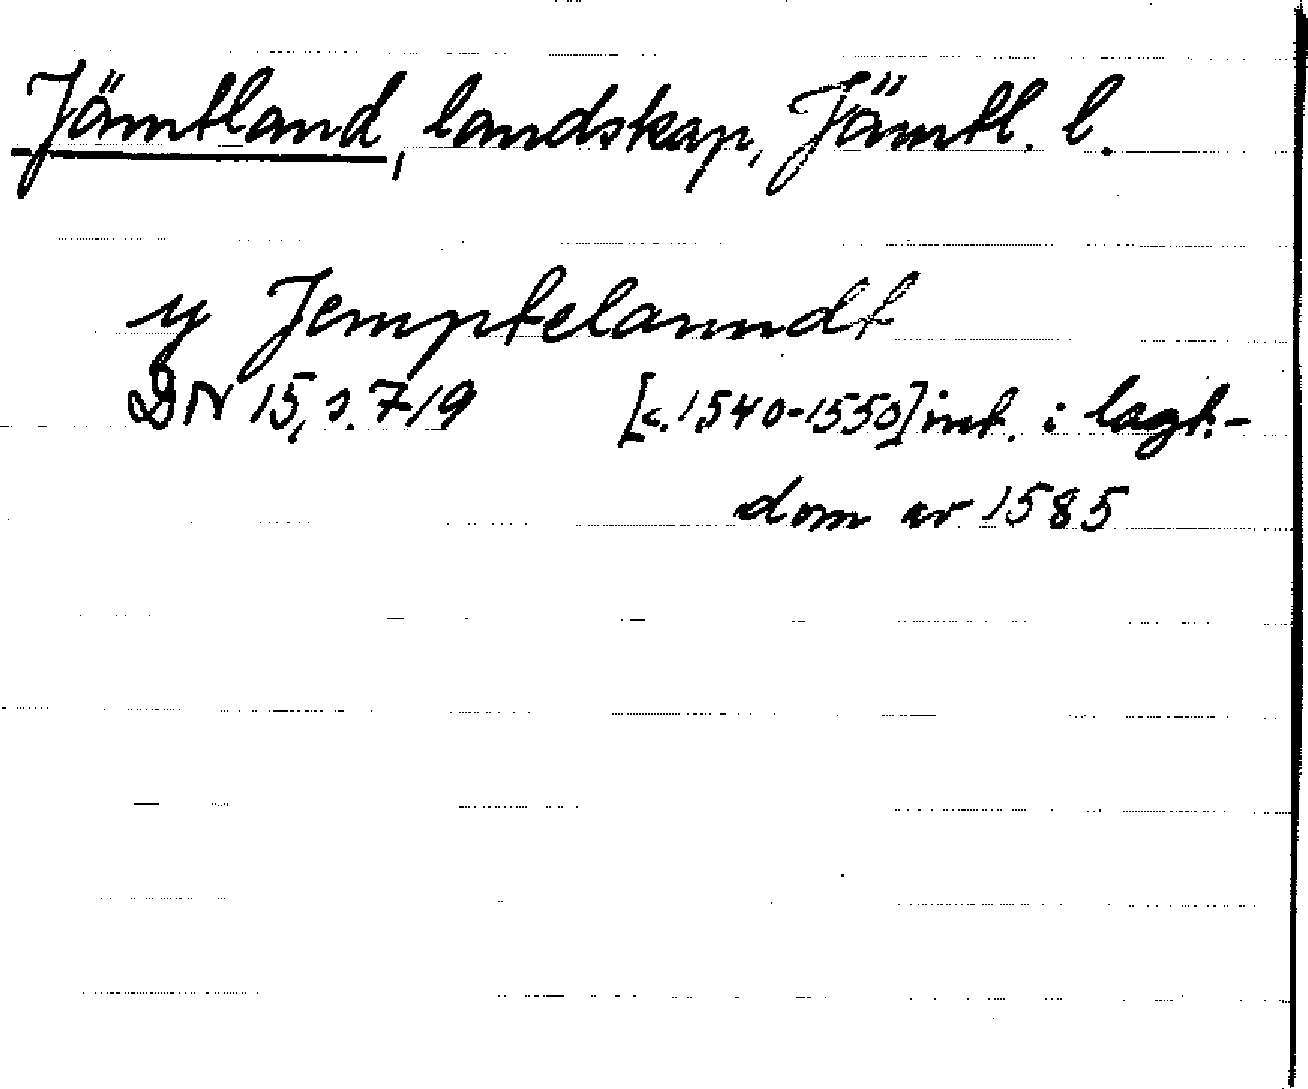 Jämtland, landskap, Jämtl. l.
y Jempteланndt
DN 15, s. 719 [c. 1540-1550] int. i lagt.-
dom av 1585